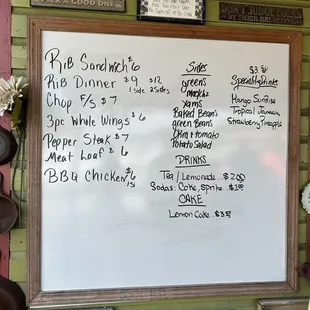 A GOOD ONE
DON'T JUDGE FOLKS
BY THEIR RELATIVES
Rib Sandwich $6
Rib Dinner $9 $12
1 side 2 sides
Chop F/S $7
3pc Whole Wings $6
Pepper Steak $7
Meat Loaf $6
BBQ Chicken $6
1s1
Sides
greens
mac&ch
yams
Baked Beans
green Beans
Okra & tomato
Potato Salad
DRINKS
Tea / Lemonade... $2.00
Sodas: Coke, Sprite.. $1.00
CAKE
Lemon Cake... $3.00
$3.00
Specialty Drinks
Mango Sunrise
Tropical Jamaican
Strawberry Pineapple